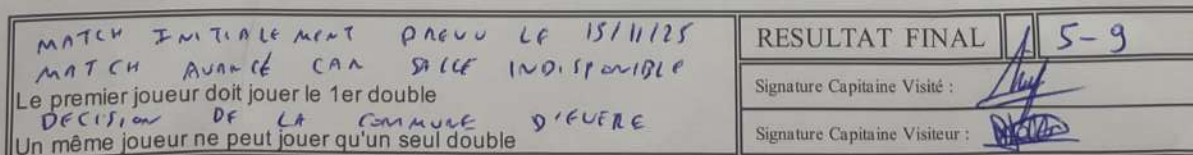 MATCH INITIALEMENT PREVU LE 15/11/25
MATCH AVANCÉ CAR SALLE INDISPONIBLE
Le premier joueur doit jouer le 1er double
DECISION DE LA COMMUNE D'EVERE
Un même joueur ne peut jouer qu'un seul double
RESULTAT FINAL 5-9
Signature Capitaine Visité :
Signature Capitaine Visiteur :